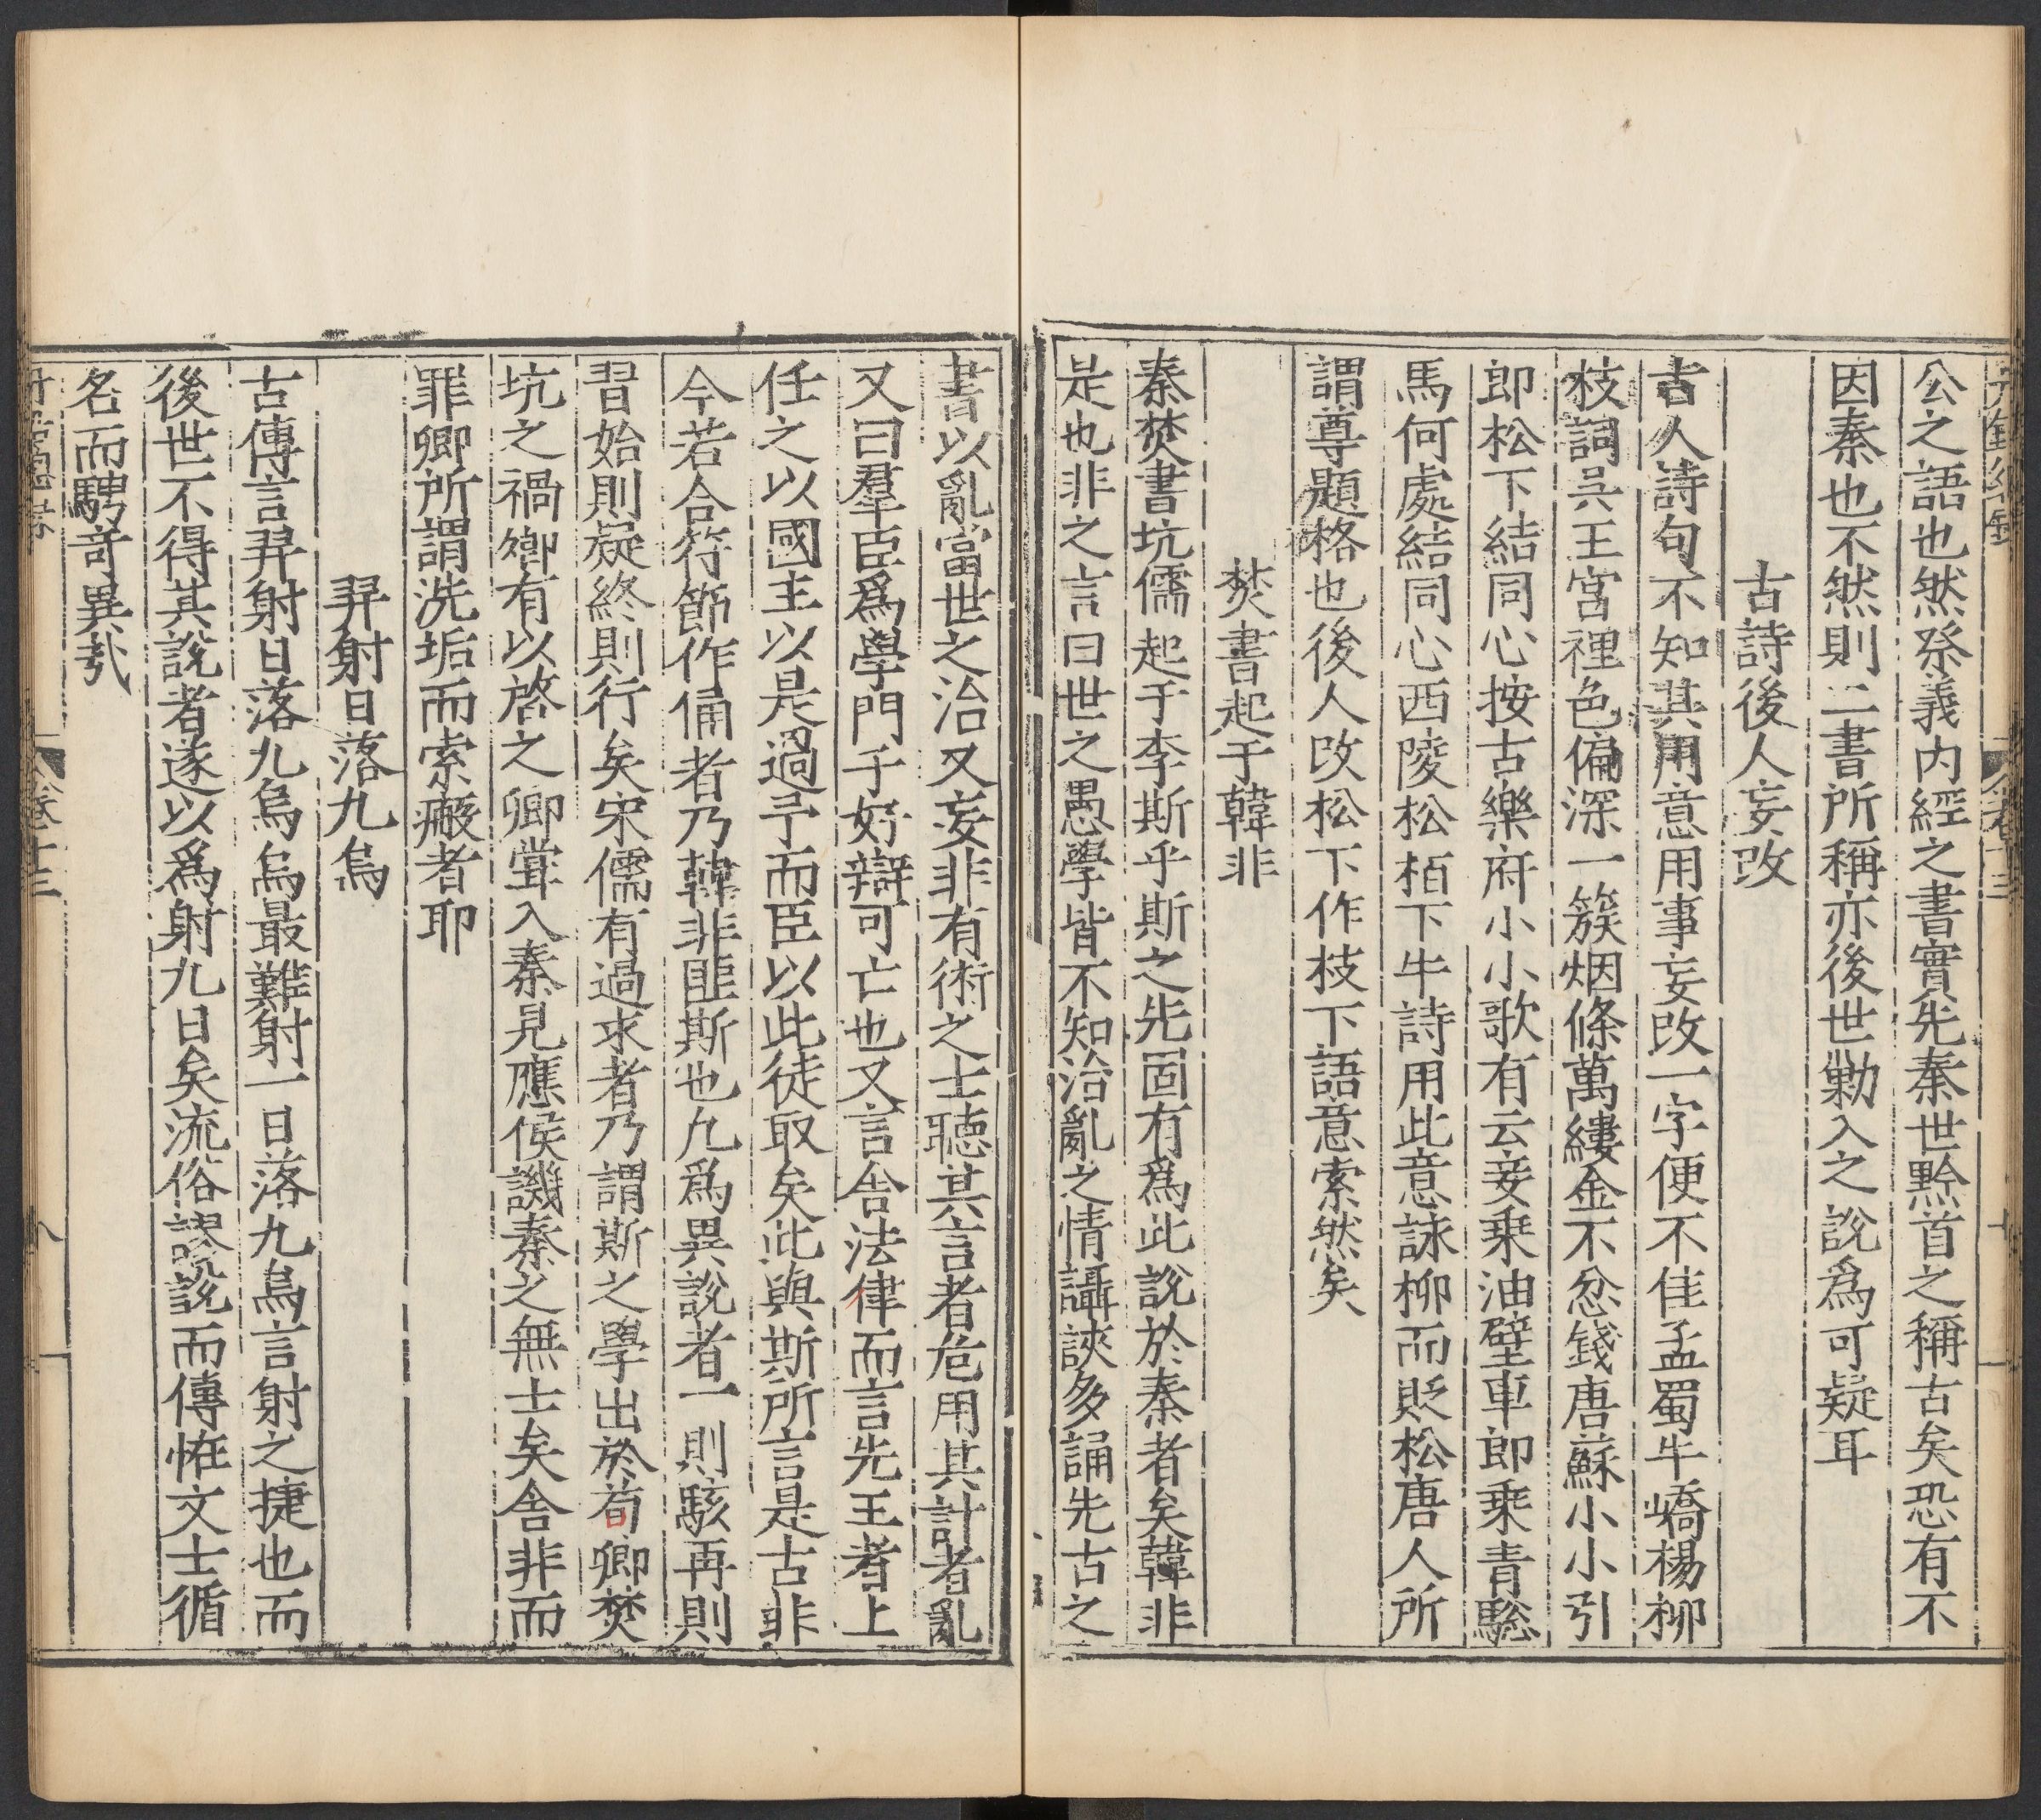 公之語也然祭義内經之書實先秦世黔首之稱古矣恐有不
因秦也不然則二書所稱亦後世勦入之說爲可疑耳
古詩後人妄改
古人詩句不知其用意用事妄改一字便不佳孟蜀牛嶠楊柳
枝詞吳王宮裡色偏深一簇烟條萬縷金不忿錢唐蘇小小引
郎松下結同心按古樂府小小歌有云妾乗油壁車郎乗青驄
馬何處結同心西陵松栢下牛詩用此意詠柳而貶松唐人所
謂尊題格也後人改松下作枝下語意索然矣
焚書起于韓非
秦焚書坑儒起于李斯乎斯之先固有爲此說於秦者矣韓非
是也非之言曰世之愚學皆不知治亂之情讘䛟多誦先古之
書以亂當世之治又妄非有術之士聽其言者危用其計者亂
又曰羣臣爲學門子好辯可亡也又言舍法律而言先王者上
任之以國主以是過予而臣以此徒取矣此與斯所言是古非
今若合符節作俑者乃韓非匪斯也凡爲異說者一則駭再則
習始則疑終則行矣宋儒有過求者乃謂斯之學出於荀卿焚
坑之禍卿有以啓之卿甞入秦見應侯譏秦之無士矣舍非而
罪卿所謂洗垢而索瘢者耶
羿射日落九烏
古傳言羿射日落九烏烏最難射一日落九烏言射之捷也而
後世不得其說者遂以爲射九日矣流俗謬說而傳恠文士循
名而騁竒異㢤
卷十三
八